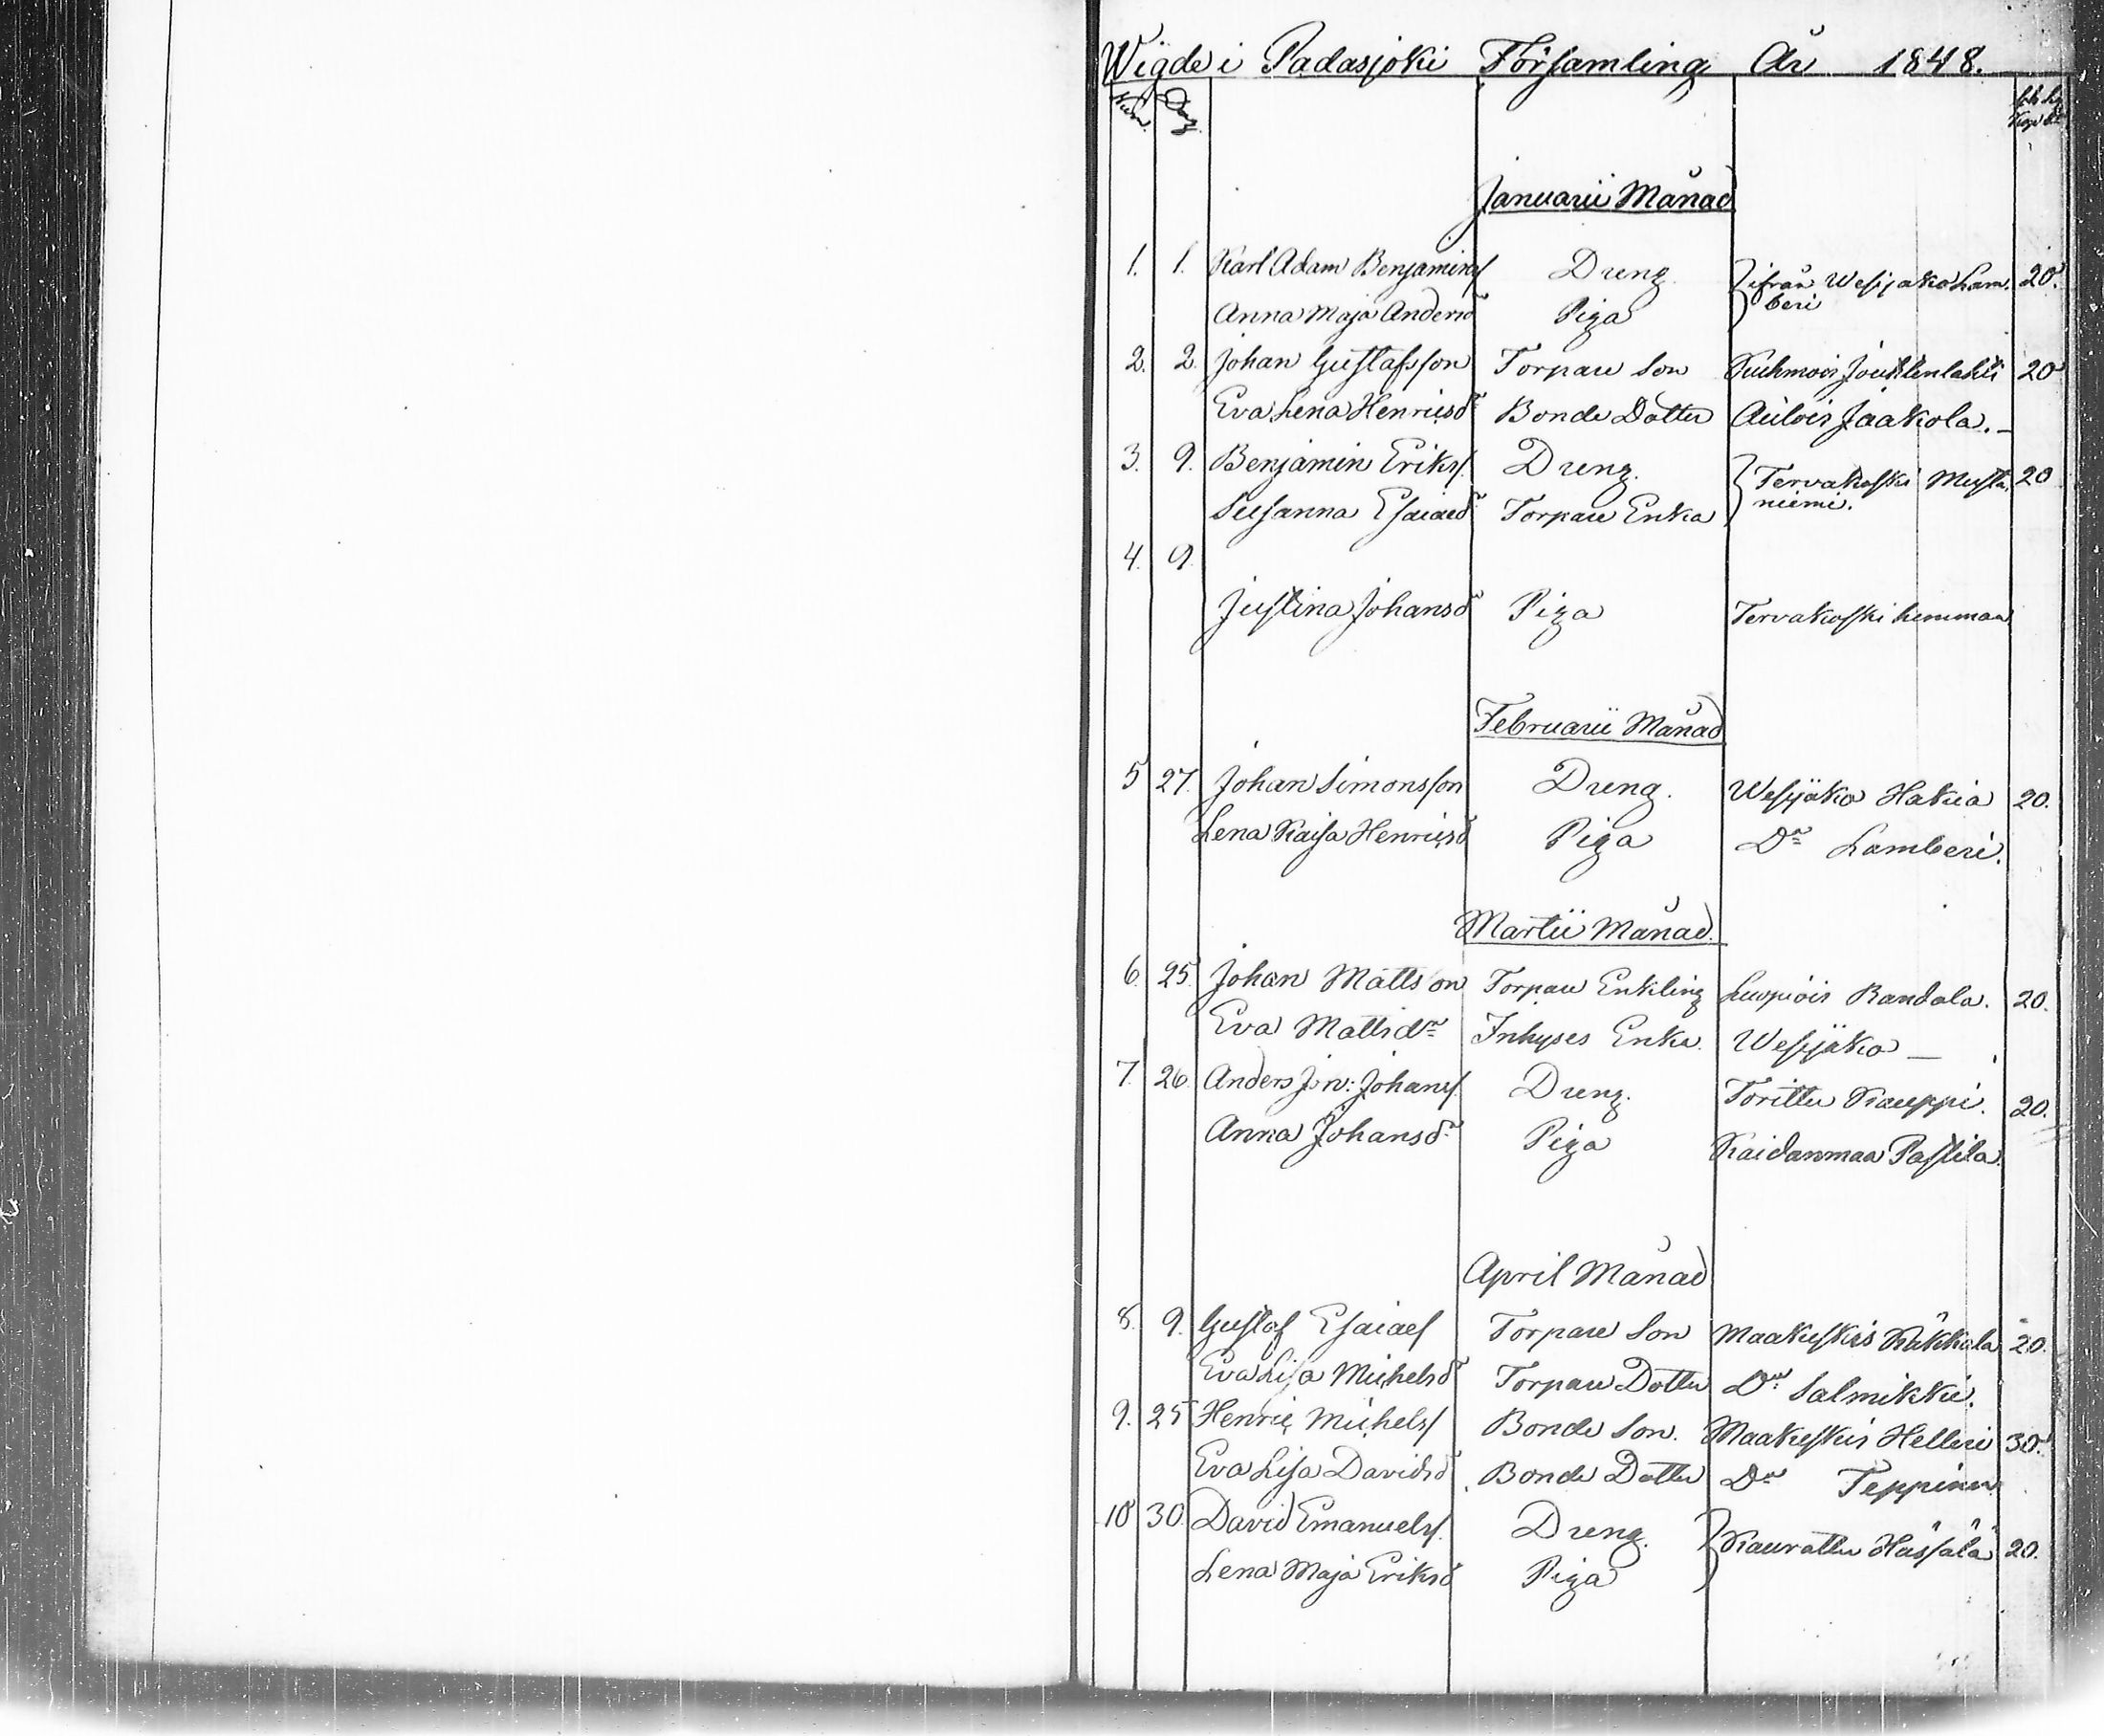 Wigde i Padasjoki Församling År 1848.
Num. Dag
Januarii Månad
1. 1. Karl Adam Benjamins Dreng ifrån Wesijako Lam- 20.
Anna Maja Andersdr Piga beri
2. 2. Johan Gustafsson Torpare Son Kuhmois Joutsenlahti 20
Eva Lena Henricsdr Bonde Dotter Autois Jaakola.
3. 9. Benjamin Eriks. Dreng. Tervakoski Musta- 20
Susanna Esaiaedr Torpare Enka niemi.
4. 9.
Justina Johansdr Piga Tervakoski hemman
Februarii Månad
5 27. Johan Simonsson Dreng. Wesijako Hakia 20.
Lena Kaisa Henricsdr Piga Do Lamberi.
Martii Månad.
6. 25. Johan Mattsson Torpare Enkling Luopiois Randala. 20.
Eva Mattsdr Inhyses Enka. Wesijako —
7. 26. Anders J:n: Johans. Dreng. Torittu Kauppi. 20.
Anna Johansdr Piga Kaidanmaa Pastila.
April Månad
8. 9. Gustaf Esaiaes Torpare Son Maakeskis Käkkälä 20.
Eva Lisa Michelsdr Torpare Dotter Do Salmikki.
9. 25 Henric Michels Bonde Son. Maakeskis Helleri 30.
Eva Lisa Davidsdr Bonde Dotter Do Teppinen
10 30. David Emanuels. Dreng. Kaurattu Hässälä 20.
Lena Maja Eriksdr Piga